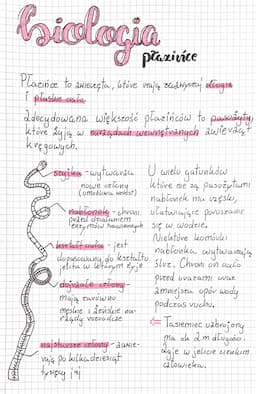 biologia
płazińce
Płazińce to zwierzęta, które mają zazwyczaj długie
i płaskie ciała.
Zdecydowana większość płazińców to pasożyty,
które żyją w narządach wewnętrznych zwierząt
kręgowych.
szyjka - wytwarza
nowe człony
(umożliwia wzrost)
nabłonek - chroni
przed działaniem
enzymów trawiennych
kształt ciała - jest
dopasowany do kształtu
jelita w którym żyje
dojrzałe człony
mają zarówno
męskie i żeńskie na-
rządy rozrodcze
najstarsze człony - zawie-
rają po kilkadziesiąt
tysięcy jaj
U wielu gatunków
które nie są pasożytami
nabłonek ma rzęski,
ułatwiające poruszanie
się w wodzie.
Niektóre komórki
nabłonka wytwarzają
śluz. Chroni on ciało
przed urazami oraz
zmniejsza opór wody
podczas ruchu.
⇐ Tasiemiec uzbrojony
ma ok 2 m długości
żyje w jelicie cienkim
człowieka.